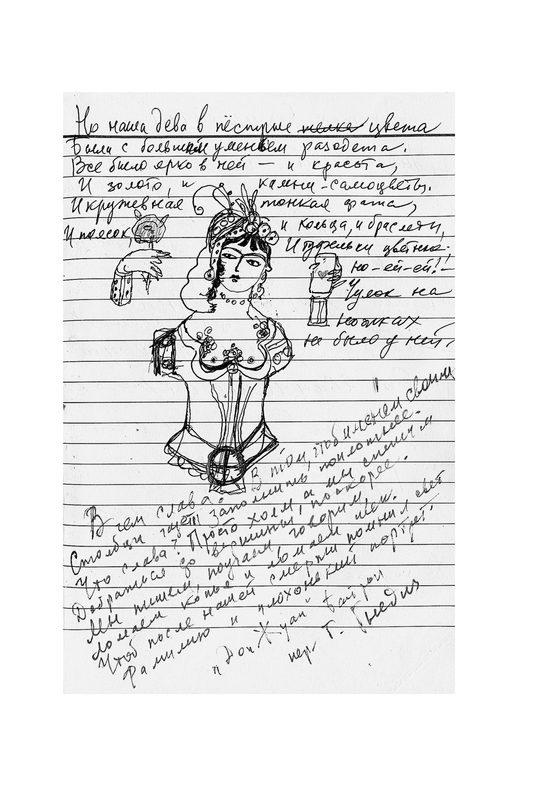 Но наша дева в пёстрые шелка цвета
Была с большим уменьем разодета.
Все было ярко в ней — и красота,
И золото, и камни-самоцветы.
И кружевная тонкая фата,
И поясок, и кольца, и браслеты,
И туфельки цветные.
Но - ей-ей! -
Чулок на
ножках
не было у ней.
В чем слава? В том, чтоб именем своим
Столбцы газет заполнить поплотнее.
Что слава? Просто холм, а мы спешим
Добраться до вершины, поскорее.
Мы пишем, поучаем, говорим,
Ломаем копья и ломаем шеи.
Чтоб после нашей смерти помнил свет
Фамилию и плохонький портрет.
"Дон Жуан" Байрон
пер. Т. Гнедич